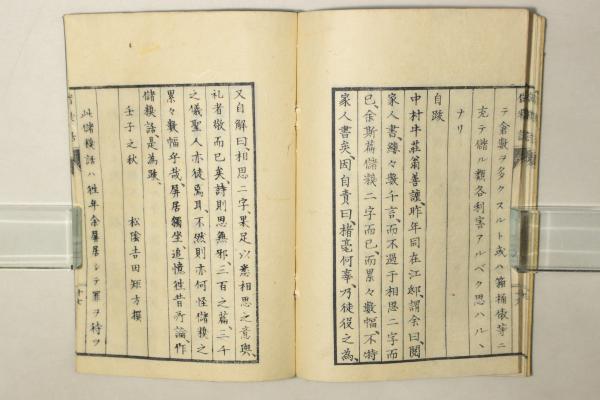 テ倉數ヲ多クスルト或ハ箱桶俵等ニ
充テ儲ル類各利害アルベク思ハルヽ
ナリ
自跋
中村牛莊翁善謔昨年同在江邸謂余曰閱
家人書縷々數千言而不過于相思二字而
已余斯篇儲糗二字而已而累々數幅不特
家人書矣因自責曰楮毫何辜乃徒役之為
又自解曰相思二字果足以悉相思之意與
礼者敬而已矣詩則思無邪三百之篇三千
之儀聖人亦徒為耳不然則亦何怪儲糗之
累々數幅乎哉屏居獨坐追憶往昔所論作
儲糗話是為跋
壬子之秋
松陰吉田矩方撰
此儲糗話ハ往年余屏居シテ罪ヲ待ツ